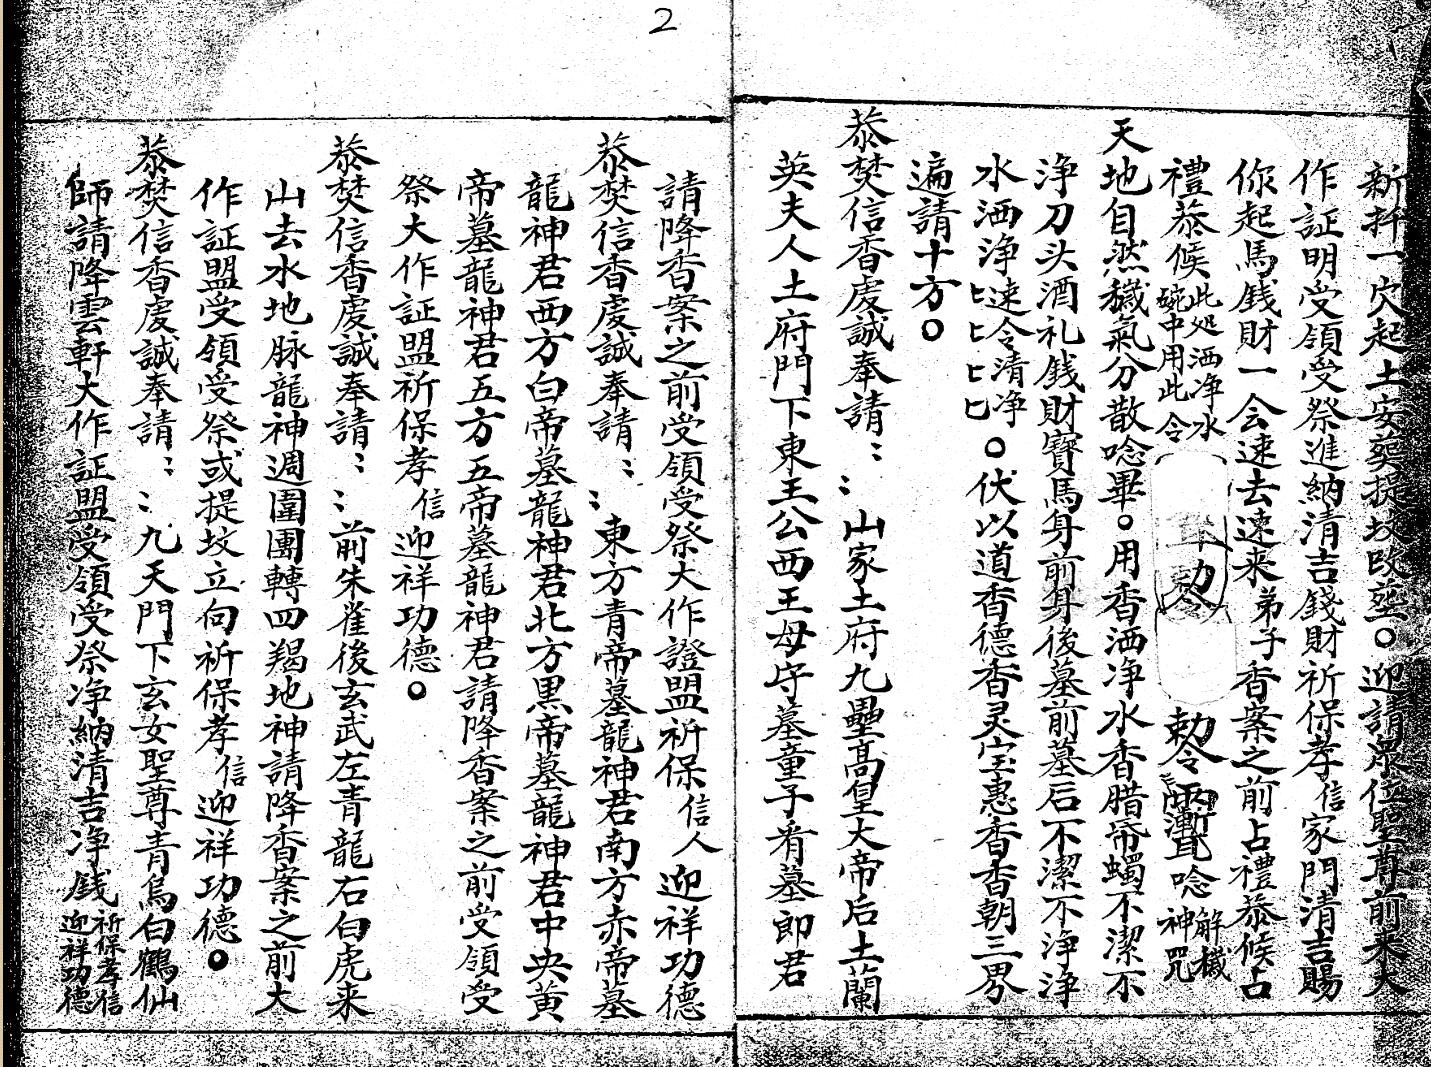 2
新扦一穴起土安葬提坟改葬。迎請眾位聖尊前来大
作証明受領受祭進納清吉錢財祈保孝信家門清吉賜
你起馬錢財一会速去速来弟子香案之前占禮恭候占
禮恭候此処洒净水碗中用此令
勅令 唸解穢神咒
天地自然穢氣分散唸畢。用香洒净水香腊帋蠋不潔不
浄刀头酒礼銭財寳馬身前身後墓前墓后不潔不浄浄
水洒浄速令清净匕匕匕匕。伏以道香德香灵宝惠香香朝三界
遍請十方。
恭焚信香虔誠奉請〻〻山家土府九壘高皇大帝后土蘭
英夫人土府門下東王公西王母守墓童子看墓郎君
請降香案之前受領受祭大作證盟祈保信人迎祥功德
恭焚信香虔誠奉請〻〻東方青帝墓龍神君南方赤帝墓
龍神君西方白帝墓龍神君北方黑帝墓龍神君中央黄
帝墓龍神君五方五帝墓龍神君請降香案之前受領受
祭大作証盟祈保孝信迎祥功德。
恭焚信香虔誠奉請〻〻前朱雀後玄武左青龍右白虎来
山去水地脉龍神週圍團轉四羯地神請降香案之前大
作証盟受領受祭或提坟立向祈保孝信迎祥功德。
恭焚信香虔誠奉請〻〻九天門下玄女聖尊青烏白鶴仙
師請降雲軒大作証盟受領受祭净納清吉净銭祈保孝信迎祥功德